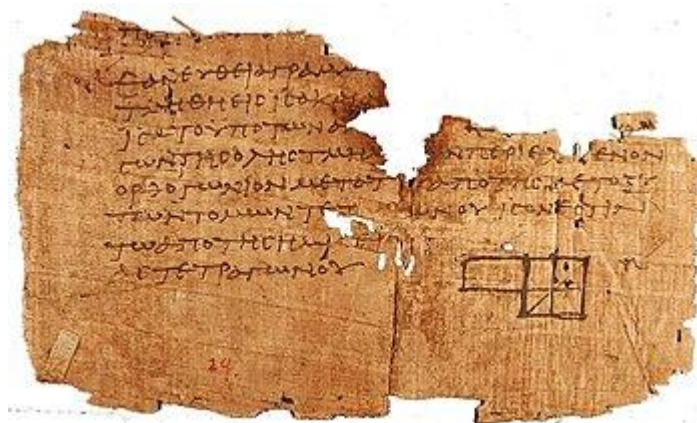 ΕΑΝ ΕΥΘΕΙΑ ΓΡΑΜ
ΤΜΗΘΗ ΕΙϹ ΙϹΑ ΚΑΙ
ΙϹΑ ΤΟ ΥΠΟ ΤΩΝ ΑΝ
ϹΩΝ ΤΗϹ ΟΛΗϹ ΤΜΗ ΩΝ ΠΕΡΙΕΧΟΜΕΝΟΝ
ΟΡΘΟΓΩΝΙΟΝ ΜΕΤΑ ΤΟΥ ΑΠΟ ΤΗϹ ΜΕΤΟΞΥ
ΤΩΝ ΤΟΜΩΝ ΤΕΤ ΓΩΝΟΥ ΙϹΟΝ ΕϹΤΙΝ
ΤΩ ΑΠΟ ΤΗϹ ΗΜΙϹ
ΤΕΤΡΑΓΩΝΟΥ